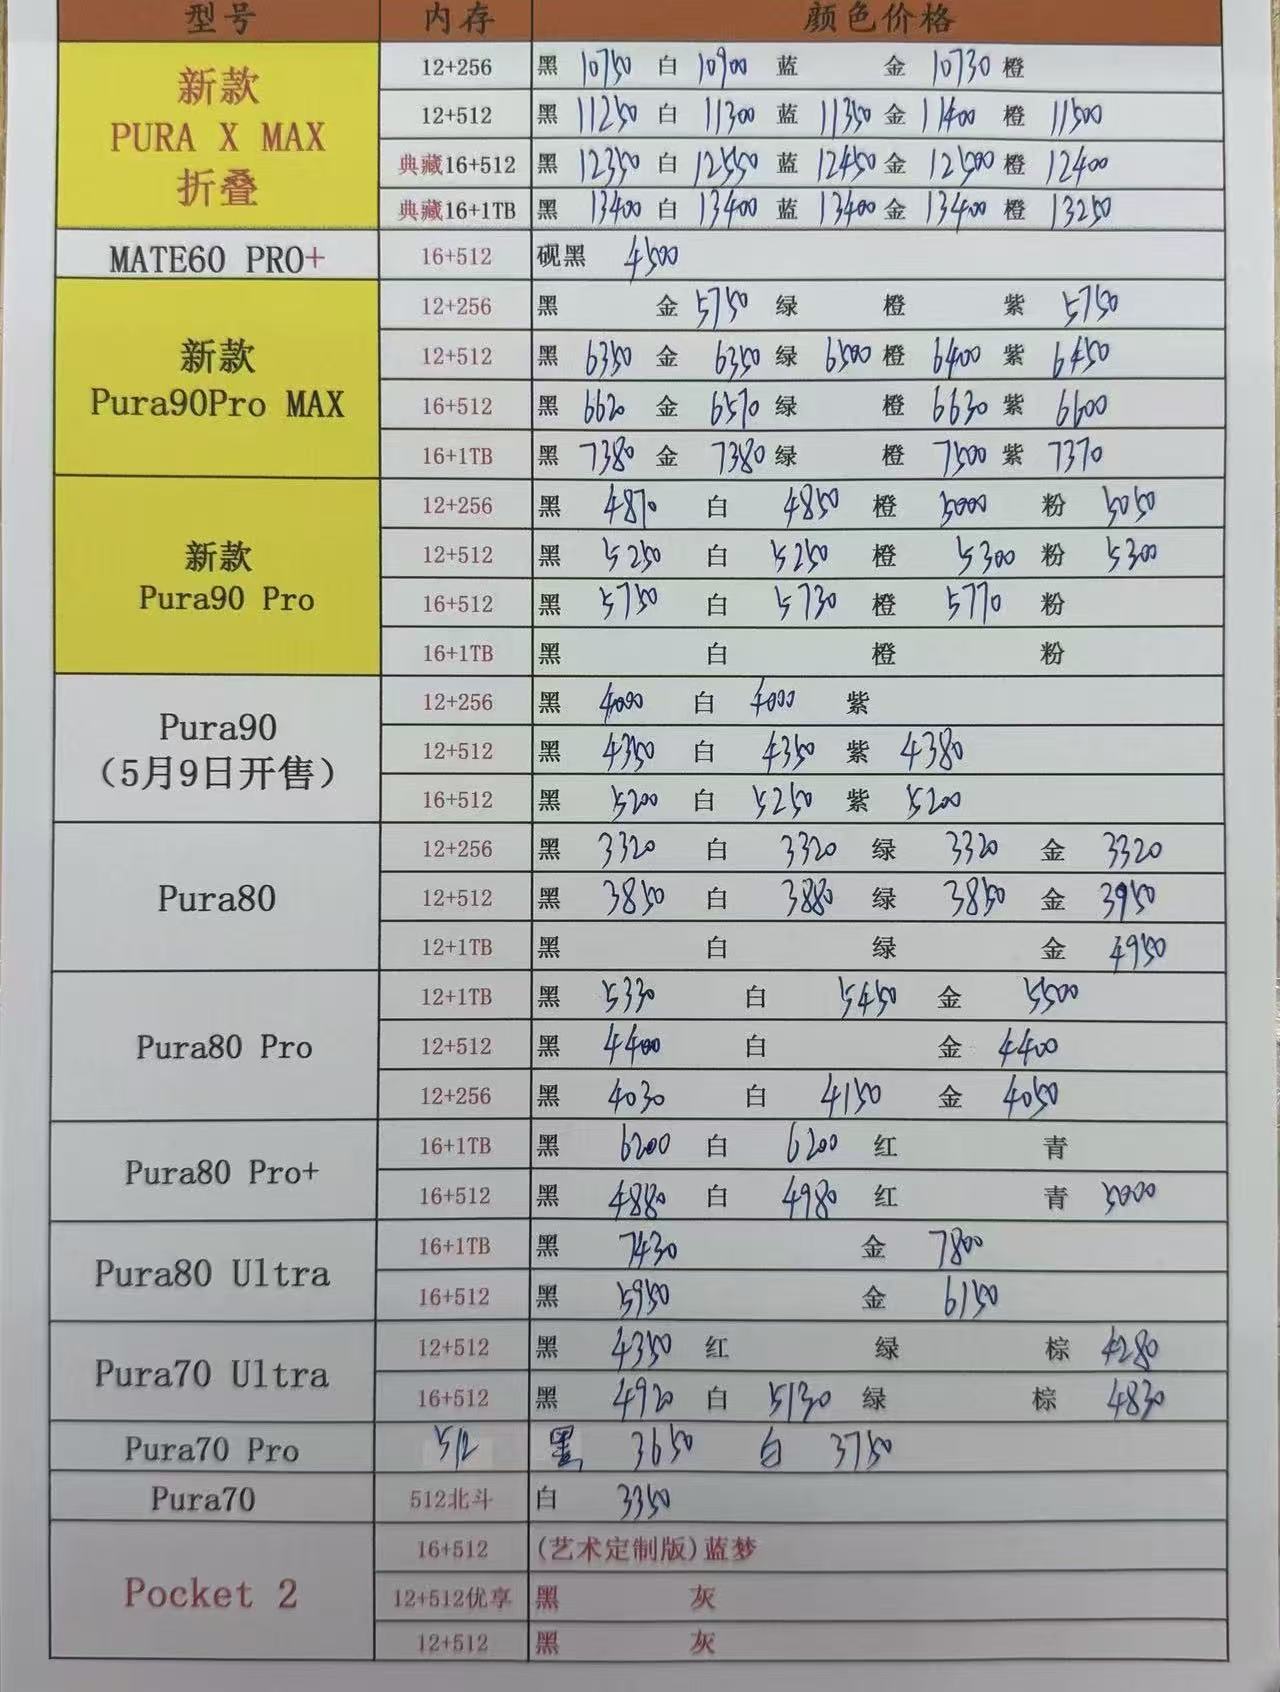 型号 内存 颜色价格
新款 PURA X MAX 折叠
12+256 黑 10750 白 10900 蓝 金 10730 橙
12+512 黑 11250 白 11300 蓝 11350 金 11400 橙 11500
典藏16+512 黑 12350 白 12550 蓝 12450 金 12500 橙 12400
典藏16+1TB 黑 13400 白 13400 蓝 13400 金 13400 橙 13250
MATE60 PRO+ 16+512 砚黑 4500
新款 Pura90Pro MAX
12+256 黑 金 5750 绿 橙 紫 5750
12+512 黑 6350 金 6350 绿 6500 橙 6400 紫 6450
16+512 黑 6620 金 6570 绿 橙 6630 紫 6600
16+1TB 黑 7380 金 7380 绿 橙 7500 紫 7370
新款 Pura90 Pro
12+256 黑 4870 白 4850 橙 5000 粉 5050
12+512 黑 5250 白 5250 橙 5300 粉 5300
16+512 黑 5750 白 5730 橙 5770 粉
16+1TB 黑 白 橙 粉
Pura90 (5月9日开售)
12+256 黑 4000 白 4000 紫
12+512 黑 4350 白 4350 紫 4380
16+512 黑 5200 白 5250 紫 5200
Pura80
12+256 黑 3320 白 3320 绿 3320 金 3320
12+512 黑 3850 白 3880 绿 3850 金 3950
12+1TB 黑 白 绿 金 4950
Pura80 Pro
12+1TB 黑 5330 白 5450 金 5500
12+512 黑 4400 白 金 4400
12+256 黑 4030 白 4150 金 4050
Pura80 Pro+
16+1TB 黑 6200 白 6200 红 青
16+512 黑 4880 白 4980 红 青 5000
Pura80 Ultra
16+1TB 黑 7430 金 7800
16+512 黑 5950 金 6150
Pura70 Ultra
12+512 黑 4350 红 绿 棕 4280
16+512 黑 4920 白 5130 绿 棕 4830
Pura70 Pro 512 黑 3650 白 3750
Pura70 512北斗 白 3350
Pocket 2
16+512 (艺术定制版)蓝梦
12+512优享 黑 灰
12+512 黑 灰